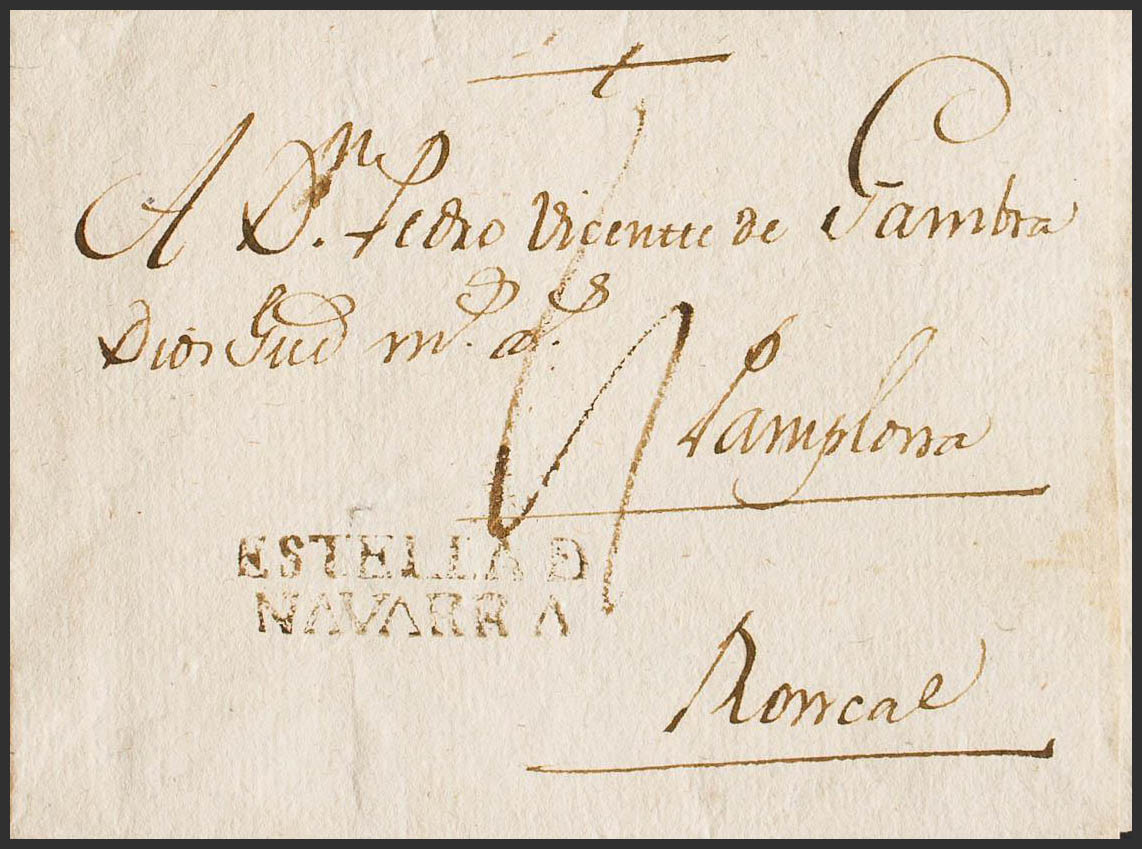 A Dn. Pedro Vicente de Gambra
Dios Gud ms. as.
Pamplona
ESTELLA D
NAVARRA
Roncal